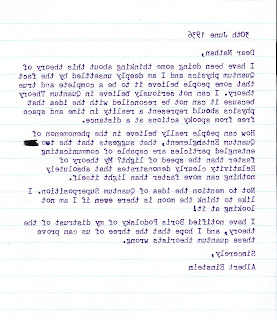 30th June 1936
Dear Nathan,
I have been doing some thinking about this theory of
Quantum Physics and I am deeply unsettled by the fact
that some people believe it to be a complete and true
theory. I can not seriously believe in Quantum Theory
because it can not be reconciled with the idea that
physics should represent a reality in time and space
free from spooky actions at a distance.
How can people really believe in the phenomenon of
Quantum Entanglement, that suggests that the two
entangled particles are capable of communicating
faster than the speed of light? My theory of
Relativity clearly demonstrates that absolutely
nothing can move faster than light itself.
Not to mention the idea of Quantum Superposition. I
like to think the moon is there even if I am not
looking at it!
I have notified Boris Podolsky of my distrust of the
theory, and I hope that the three of us can prove
these quantum theorists wrong.
Sincerely,
Albert Einstein